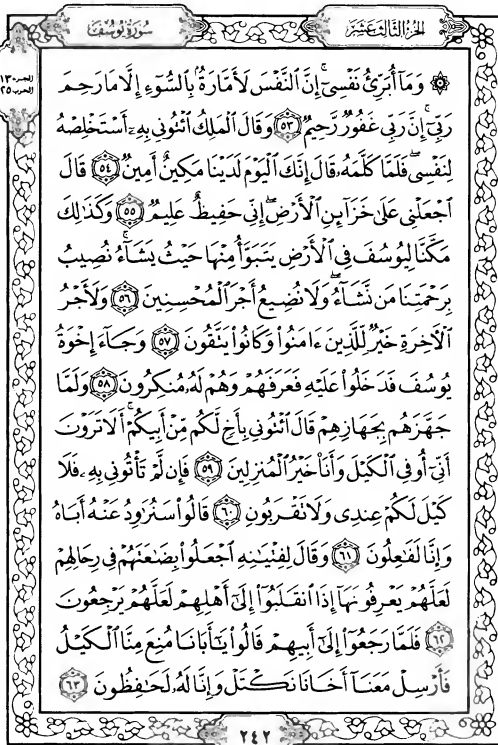 الجزء الثالث عشر
سورة يوسف
الجزء ١٣
الحزب ٢٥
۞ وَمَآ أُبَرِّئُ نَفْسِىٓۚ إِنَّ ٱلنَّفْسَ لَأَمَّارَةٌۢ بِٱلسُّوٓءِ إِلَّا مَا رَحِمَ
رَبِّىٓۚ إِنَّ رَبِّى غَفُورٌ رَّحِيمٌ ٥٣ وَقَالَ ٱلْمَلِكُ ٱئْتُونِى بِهِۦٓ أَسْتَخْلِصْهُ
لِنَفْسِىۖ فَلَمَّا كَلَّمَهُۥ قَالَ إِنَّكَ ٱلْيَوْمَ لَدَيْنَا مَكِينٌ أَمِينٌ ٥٤ قَالَ
ٱجْعَلْنِى عَلَىٰ خَزَآئِنِ ٱلْأَرْضِۖ إِنِّى حَفِيظٌ عَلِيمٌ ٥٥ وَكَذَٰلِكَ
مَكَّنَّا لِيُوسُفَ فِى ٱلْأَرْضِ يَتَبَوَّأُ مِنْهَا حَيْثُ يَشَآءُۚ نُصِيبُ
بِرَحْمَتِنَا مَن نَّشَآءُۖ وَلَا نُضِيعُ أَجْرَ ٱلْمُحْسِنِينَ ٥٦ وَلَأَجْرُ
ٱلْآخِرَةِ خَيْرٌ لِّلَّذِينَ ءَامَنُوا۟ وَكَانُوا۟ يَتَّقُونَ ٥٧ وَجَآءَ إِخْوَةُ
يُوسُفَ فَدَخَلُوا۟ عَلَيْهِ فَعَرَفَهُمْ وَهُمْ لَهُۥ مُنكِرُونَ ٥٨ وَلَمَّا
جَهَّزَهُم بِجَهَازِهِمْ قَالَ ٱئْتُونِى بِأَخٍ لَّكُم مِّنْ أَبِيكُمْۚ أَلَا تَرَوْنَ
أَنِّىٓ أُوفِى ٱلْكَيْلَ وَأَنَا۠ خَيْرُ ٱلْمُنزِلِينَ ٥٩ فَإِن لَّمْ تَأْتُونِى بِهِۦ فَلَا
كَيْلَ لَكُمْ عِندِى وَلَا تَقْرَبُونِ ٦٠ قَالُوا۟ سَنُرَٰوِدُ عَنْهُ أَبَاهُ
وَإِنَّا لَفَٰعِلُونَ ٦١ وَقَالَ لِفِتْيَٰنِهِ ٱجْعَلُوا۟ بِضَٰعَتَهُمْ فِى رِحَالِهِمْ
لَعَلَّهُمْ يَعْرِفُونَهَآ إِذَا ٱنقَلَبُوٓا۟ إِلَىٰٓ أَهْلِهِمْ لَعَلَّهُمْ يَرْجِعُونَ
٦٢ فَلَمَّا رَجَعُوٓا۟ إِلَىٰٓ أَبِيهِمْ قَالُوا۟ يَٰٓأَبَانَا مُنِعَ مِنَّا ٱلْكَيْلُ
فَأَرْسِلْ مَعَنَآ أَخَانَا نَكْتَلْ وَإِنَّا لَهُۥ لَحَٰفِظُونَ ٦٣
٢٤٢